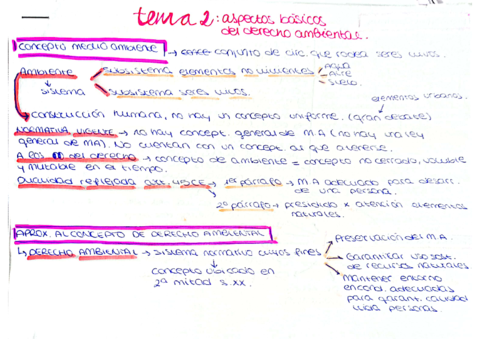 tema 2: aspectos básicos
del derecho ambiental.
CONCEPTO MEDIO AMBIENTE → conjunto de circ. que rodea seres vivos.
AMBIENTE
SISTEMA
subsistema elementos no vivientes
AGUA
AIRE
SUELO
subsistema seres vivos.
elementos urbanos.
construcción humana, no hay un concepto uniforme. (gran debate)
NORMATIVA VIGENTE → no hay concept. general de MA (no hay una ley
general de MA). No cuentan con un concept. al que atenerse.
A efos del derecho → concepto de ambiente = concepto no cerrado, voluble
y mutable en el tiempo.
Dualidad reflejada art. 45 CE
1er párrafo → MA adecuado para desarr.
de una persona.
2º párrafo → presidido x atención elementos
naturales.
APROX. AL CONCEPTO DE DERECHO AMBIENTAL
↳ DERECHO AMBIENTAL → sistema normativo cuyos fines
Preservación del M.A.
Garantizar uso sost.
de recursos naturales
Mantener entorno
en cond. adecuadas
para garant. calidad
vida personas.
concepto ubicado en
2ª mitad s. XX.